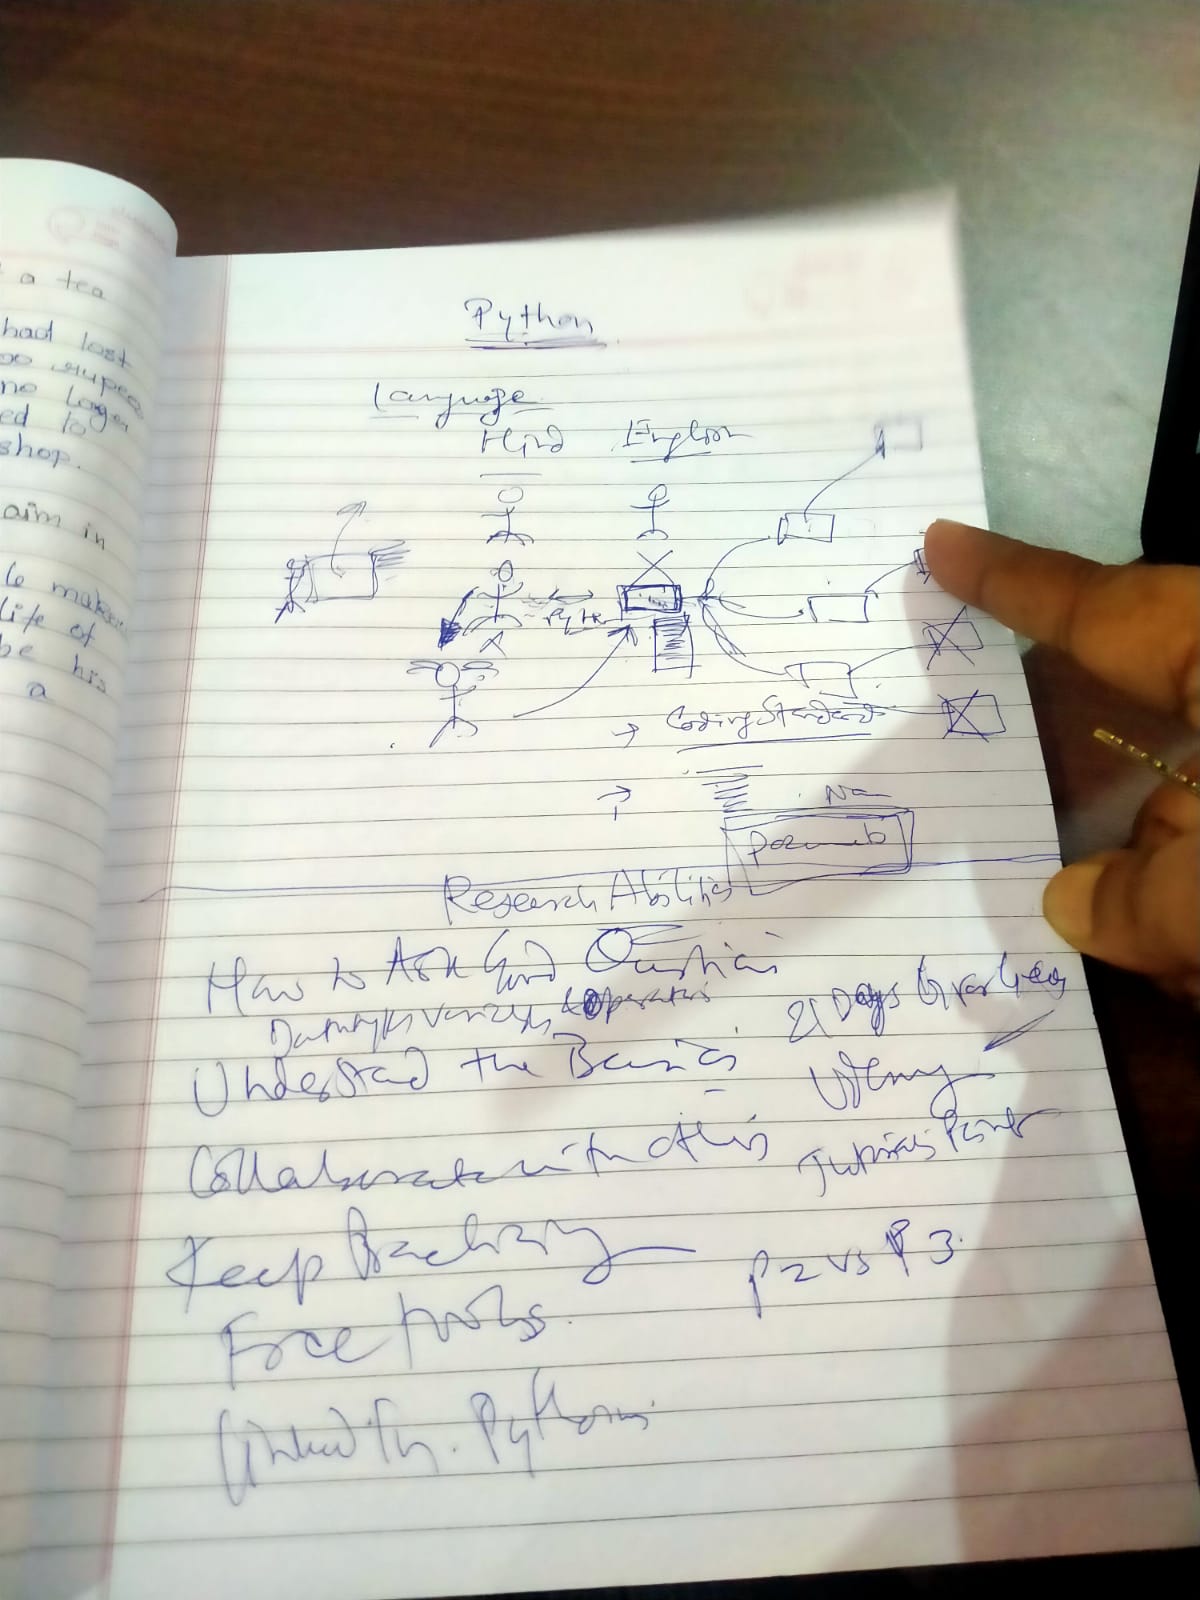 a tea
had lost
00 rupees
no longer
ed to
shop.
aim in
le
life of
be his
a
Python
Language
Hind English
Pyth
→ Coding Standards
→
Na
Research Abilities
How to Ask Good Questions
Datatypes Variables & Operators
Understand the Basics
Collaborate with others
Keep Practicing
Free Tools
LinkedIn. Python
21 Days
Udemy
Tutorials Point
P2 vs P3.